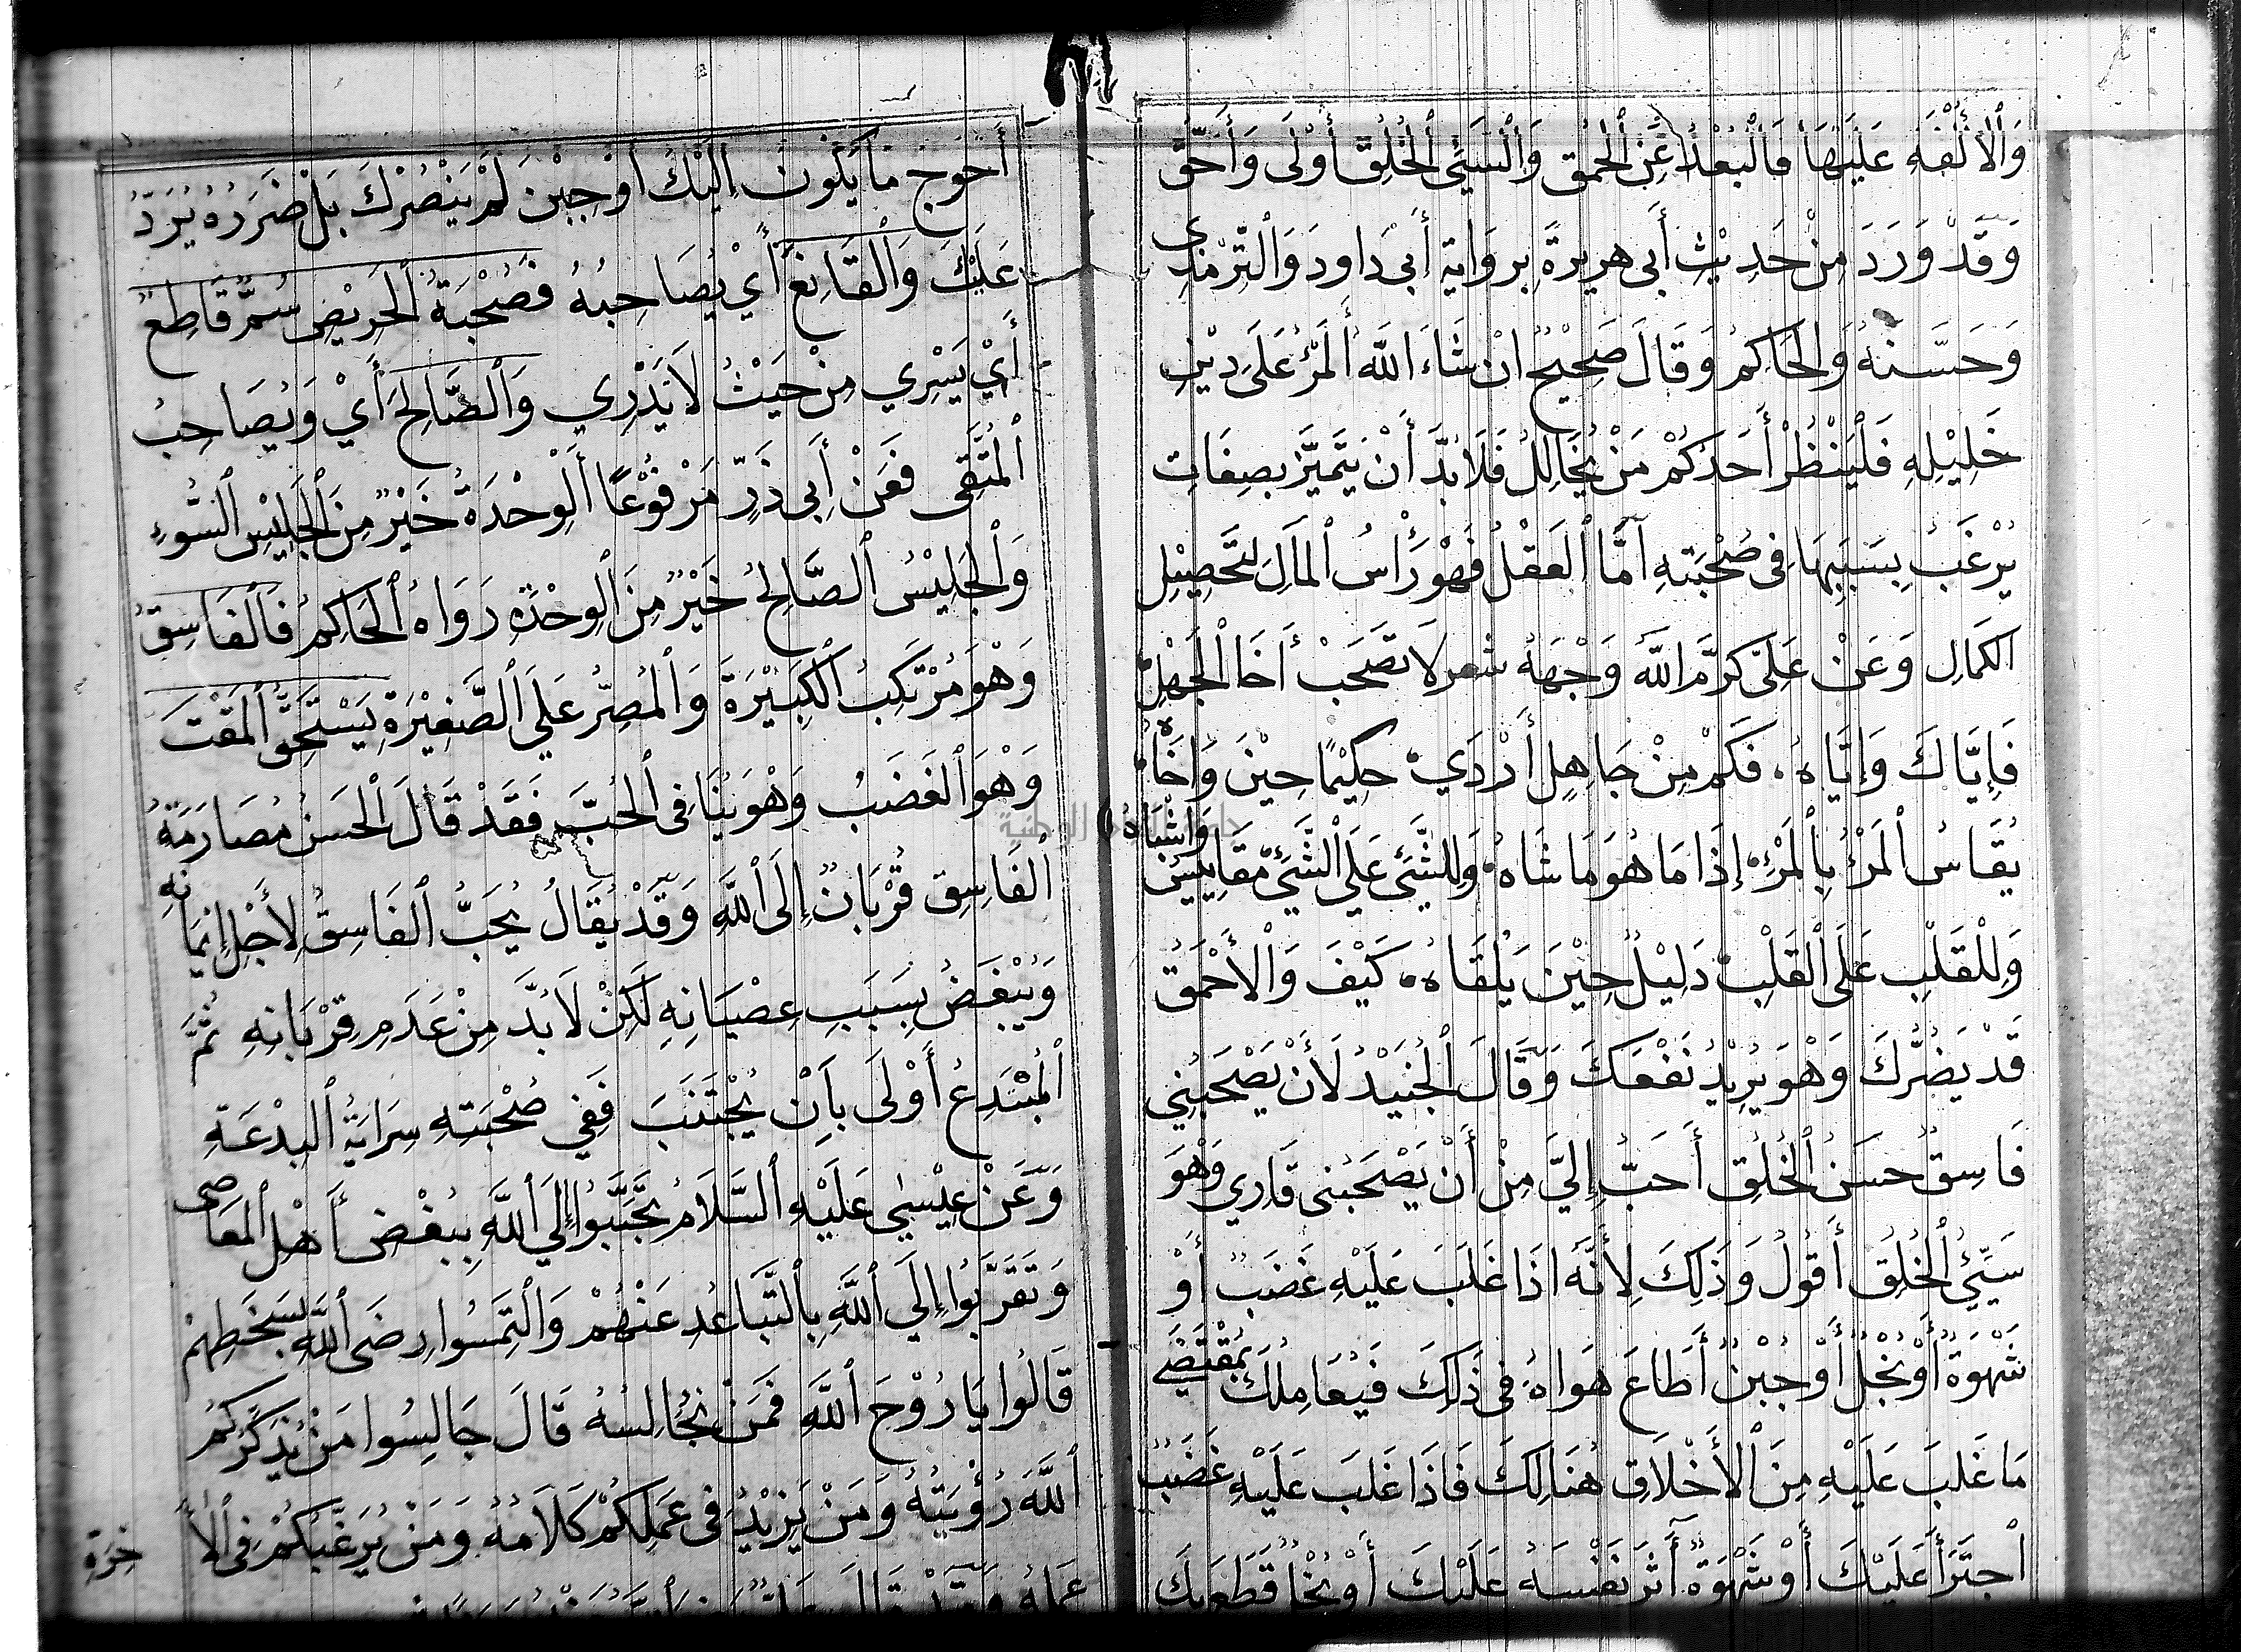 وَالْأُلْفَةِ عَلَيْهَا فَالْبُعْدُ عَنِ الْحُمْقِ وَالسَّيِّئِ الْخُلُقِ أَوْلَى وَأَحَقّ
وَقَدْ وَرَدَ مِنْ حَدِيْثِ أَبِى هريرةَ بِرِوَايَةِ أَبِى دَاودَ وَالتِّرْمذِى
وَحَسَّنَهُ وَالْحَاكِمُ وَقَالَ صَحِيْحٌ انْ شَاءَ اللَّه أَلْمَرْءُ عَلَى دِيْنِ
خَلِيْلِهِ فَلْيَنْظُرْ أَحَدُكُمْ مَنْ يُخَالِلُ فَلَا بُدَّ أَنْ يَتَمَيَّزَ بِصِفَاتٍ
يُرْغَبُ بِسَبَبِهَا فِى صُحْبَتِهِ أَمَّا الْعَقْلُ فَهْوَ رَأْسُ الْمَالِ لِتَحْصِيْلِ
الكَمَالِ وَعَنْ عَلِىّ كَرَّمَ اللَّه وَجْهَهُ شعر لَا تَصْحَبْ أَخَا الْجَهْلِ
فَإِيَّاكَ وَإِيَّاهُ فَكَمْ مِنْ جَاهِلٍ أَرْدَيْ حَكِيْمًا حِيْنَ وَاخَاهُ
يُقَاسُ الْمَرْءُ بِالْمَرْءِ إِذَا مَا هُوَ مَا شَاهُ وَلِلشَّيْءِ عَلَى الشَّيْءِ مَقَايِيْسُ وَاشْبَاهُ
وَلِلْقَلْبِ عَلَى الْقَلْبِ دَلِيْلٌ حِيْنَ يَلْقَاهُ كَيْفَ وَالْأَحْمَقُ
قَدْ يَضُرُّكَ وَهْوَ يُرِيْدُ نَفْعَكَ وَقَالَ الْجُنَيْدُ لَأَنْ يَصْحَبَنِي
فَاسِقٌ حَسَنُ الْخُلُقِ أَحَبُّ إِلَيَّ مِنْ أَنْ يَصْحَبَنِى قَارِي وَهْوَ
سَيِّئُ الْخُلُقِ أَقُولُ وَذَلِكَ لِأَنَّهُ اذَا غَلَبَ عَلَيْهِ غَضَبٌ أَوْ
شَهْوَةٌ أَوْ بُخْلٌ أَوْ جُبْنٌ أَطَاعَ هَوَاهُ فِى ذَلِكَ فَيُعَامِلُكَ بِمُقْتَضَى
مَا غَلَبَ عَلَيْهِ مِنَ الْأَخْلَاقِ هُنَالِكَ فَاذَا غَلَبَ عَلَيْهِ غَضَبٌ
اجْتَرَأَ عَلَيْكَ أَوْ شَهْوَةٌ أَثَرَ نَفْسَهُ عَلَيْكَ أَوْ بُخْلٌ قَطَعَ بِكَ
أَحْوَج مَا يَكُونُ إِلَيْكَ أَوْ جُبْنٌ لَمْ يَنْصُرْكَ بَلْ ضَرَرُهُ يُرَدُّ
عَلَيْكَ وَالْقَانِعَ أَيْ يُصَاحِبُهُ فَصُحْبَةُ الْحَرِيْصِ سُمٌّ قَاطِعٌ
أَيْ يَسْرِي مِنْ حَيْثُ لَا يَدْرِي وَالصَّالِحَ أَيْ وَيُصَاحِبُ
الْمُتَّقِى فَعَنْ أَبِى ذَرٍّ مَرْفُوْعًا أَلْوِحْدَةُ خَيْرٌ مِنَ الْجَلِيْسِ السُّوءِ
وَالْجَلِيْسُ الصَّالِحُ خَيْرٌ مِنَ الْوِحْدَةِ رَوَاهُ الْحَاكِمُ فَالْفَاسِقُ
وَهْوَ مُرْتَكِبُ الْكَبِيْرَةَ وَالْمُصِرُّ عَلَى الصَّغِيْرَةِ يَسْتَحِقُّ الْمَقْتَ
وَهْوَ الْغَضَبُ وَهْوَ يُنَافِى الْحُبَّ فَقَدْ قَالَ الْحَسَنُ مُصَارَمَةُ
الْفَاسِقِ قُرْبَانٌ إِلَى اللَّهِ وَقَدْ يُقَالُ يُحَبُّ الْفَاسِقُ لِأَجْلِ إِيْمَانِهِ
وَيُبْغَضُ بِسَبَبِ عِصْيَانِهِ لَكِنْ لَا بُدَّ مِنْ عَدَمِ قِرْبَانِهِ ثُمَّ
الْمُبْتَدِعُ أَوْلَى بِأَنْ يُجْتَنَبَ فَفِي صُحْبَتِهِ سِرَايَةُ الْبِدْعَةِ
وَعَنْ عِيْسٰى عَلَيْهِ السَّلَامُ تَحَبَّبُوا إِلَي اللَّهِ بِبُغْضِ أَهْلِ الْمَعَاصِى
وَتَقَرَّبُوا إِلَي اللَّهِ بِالتَّبَاعُدِ عَنْهُمْ وَالْتَمِسُوا رِضَى اللَّهِ بِسَخَطِهِمْ
قَالُوا يَا رُوْحَ اللَّهِ فَمَنْ نُجَالِسُهُ قَالَ جَالِسُوا مَنْ يُذَكِّرُكُمُ
اللَّهَ رُؤْيَتُهُ وَمَنْ يَزِيْدُ فِى عَمَلِكُمْ كَلَامُهُ وَمَنْ يُرَغِّبُكُمْ فِى الْآخِرَةِ
عَمَلُهُ وَقَدْ قَالَ